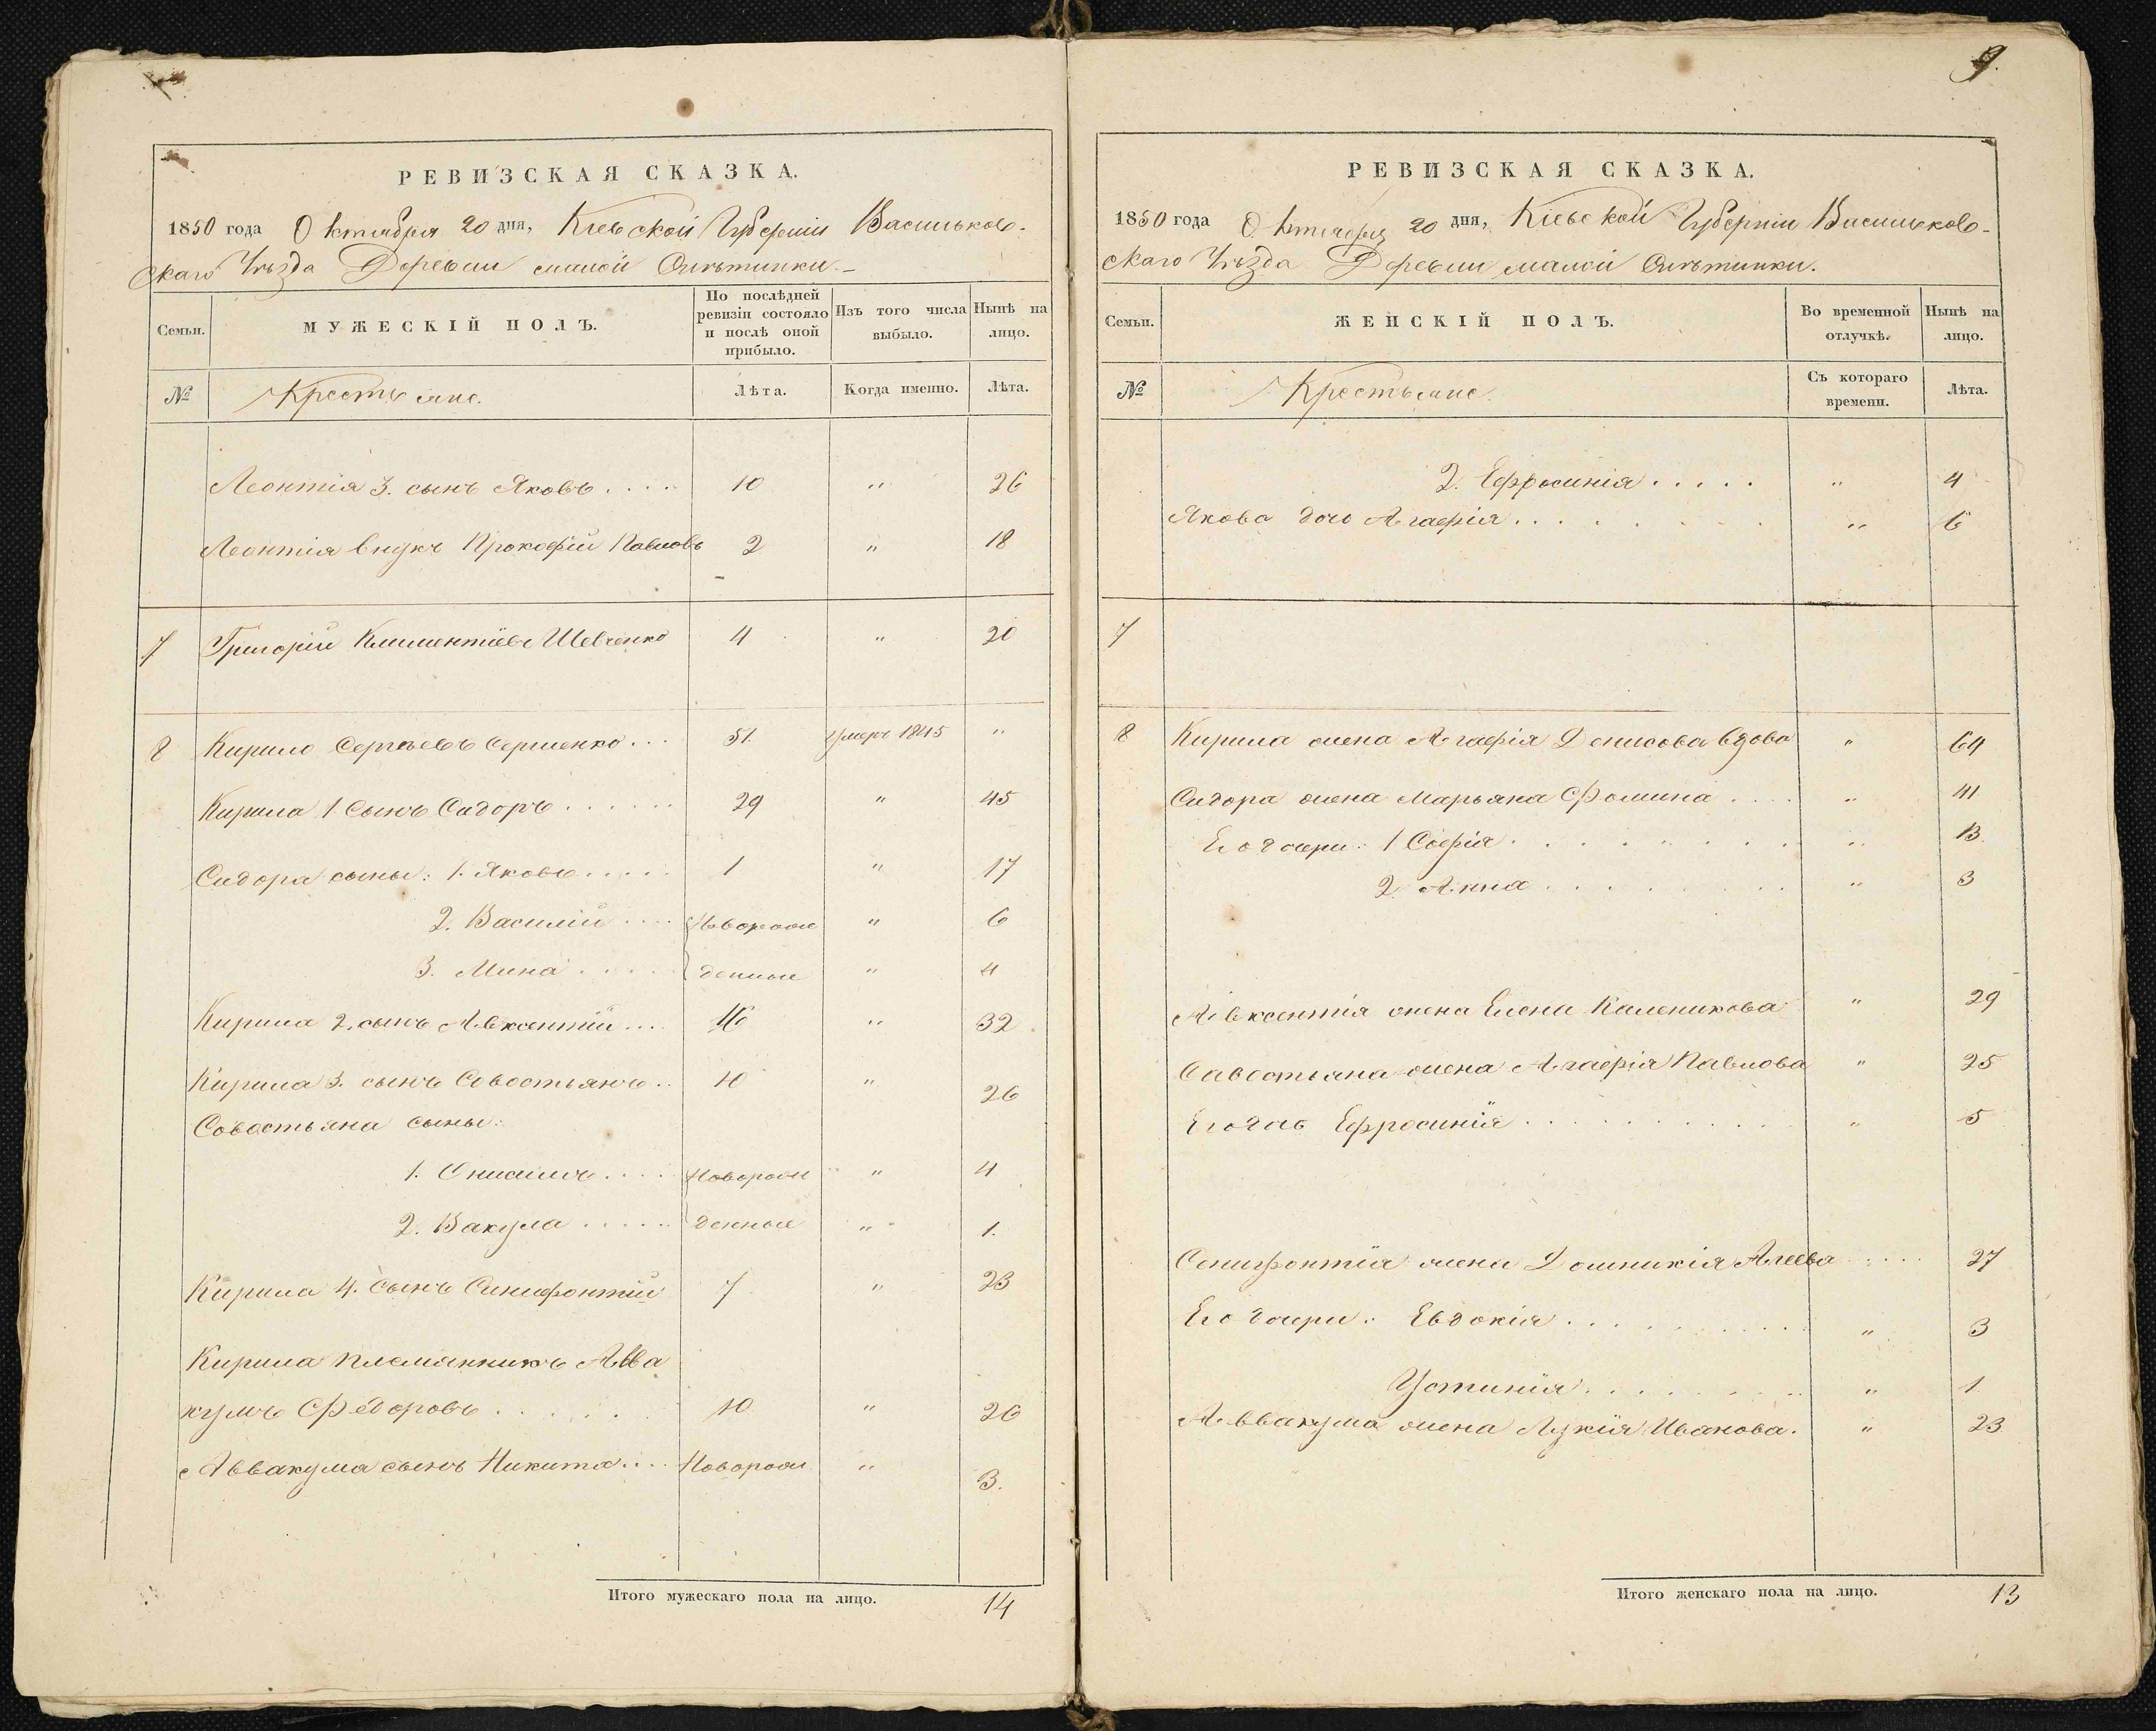 9.
РЕВИЗСКАЯ СКАЗКА.
1850 года Октября 20 дня, Кіевской Губерніи Васильков-
скаго Уѣзда Деревни малой Снѣтинки.-
Семьи.
МУЖЕСКІЙ ПОЛЪ.
По послѣдней ревизіи состояло и послѣ оной прибыло.
Изъ того числа выбыло.
Нынѣ на лицо.
№ Крестьяне. Лѣта. Когда именно. Лѣта.
Леонтія 3. сынъ Яковъ . . . . 10 " 26
Леонтія внукъ Прокофій Павловъ 2 " 18
7 Григорій Климентіевъ Шевченко 4 " 20
8 Кирило Сергѣевъ Сергиенко . . . 51. умеръ 1845 "
Кирила 1 Сынъ Сидоръ . . . . . . 29 " 45
Сидора сыны: 1. Яковъ . . . . . 1 " 17
2. Василій . . . . Новорож " 6
3. Мина . . . . денные " 4
Кирила 2. сынъ Авксентій . . . . 16 " 32.
Кирила 3. сынъ Совостьянъ . . 10 " 26
Совостьяна сыны:
1. Онисимъ . . . . Новорож " 4
2. Вакула . . . . . денные " 1.
Кирила 4. Сынъ Синифонтій 7 " 23
Кирила племянникъ Авва
кумъ Федоровъ . . . . . 10 " 26
Аввакума сынъ Никита . . . . Новорож " 3.
Итого мужескаго пола на лицо. 14
РЕВИЗСКАЯ СКАЗКА.
1850 года Октября 20 дня, Кіевской Губерніи Васильков-
скаго Уѣзда Деревни малой Снѣтинки.
Семьи.
ЖЕНСКІЙ ПОЛЪ.
Во временной отлучкѣ.
Нынѣ на лицо.
№ Крестьяне. Съ котораго времени. Лѣта.
2. Ефросинія . . . . . " 4
Якова дочь Агафія . . . . . . . . " 6
7
8 Кирила жена Агафія Денисова вдова " 64
Сидора жена Марьяна Фомина . . . . " 41
Его дочери: 1 Софія . . . . . . . . . " 13.
2. Анна . . . . . . . . . " 3
Авксентія жена Елена Каленикова " 29
Савостьяна жена Агафія Павлова " 25
Его дочь Ефросинія . . . . . . . . . . . " 5
Сенифонтія жена Домникія Алеева . . . . 27
Его дочери: Евдокія . . . . . . . . . . " 3
Устинія . . . . . . . . " 1
Аввакума жена Лукія Иванова. " 23
Итого женскаго пола на лицо. 13